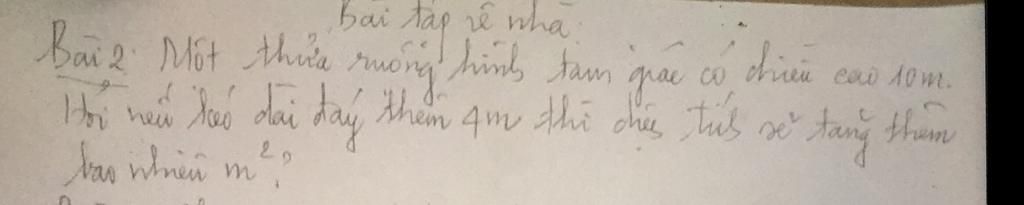 Bài tập về nhà.
Bài 2: Một thửa ruộng hình tam giác có chiều cao 10m.
Hỏi nếu kéo dài đáy thêm 4m thì diện tích sẽ tăng thêm
bao nhiêu m²?